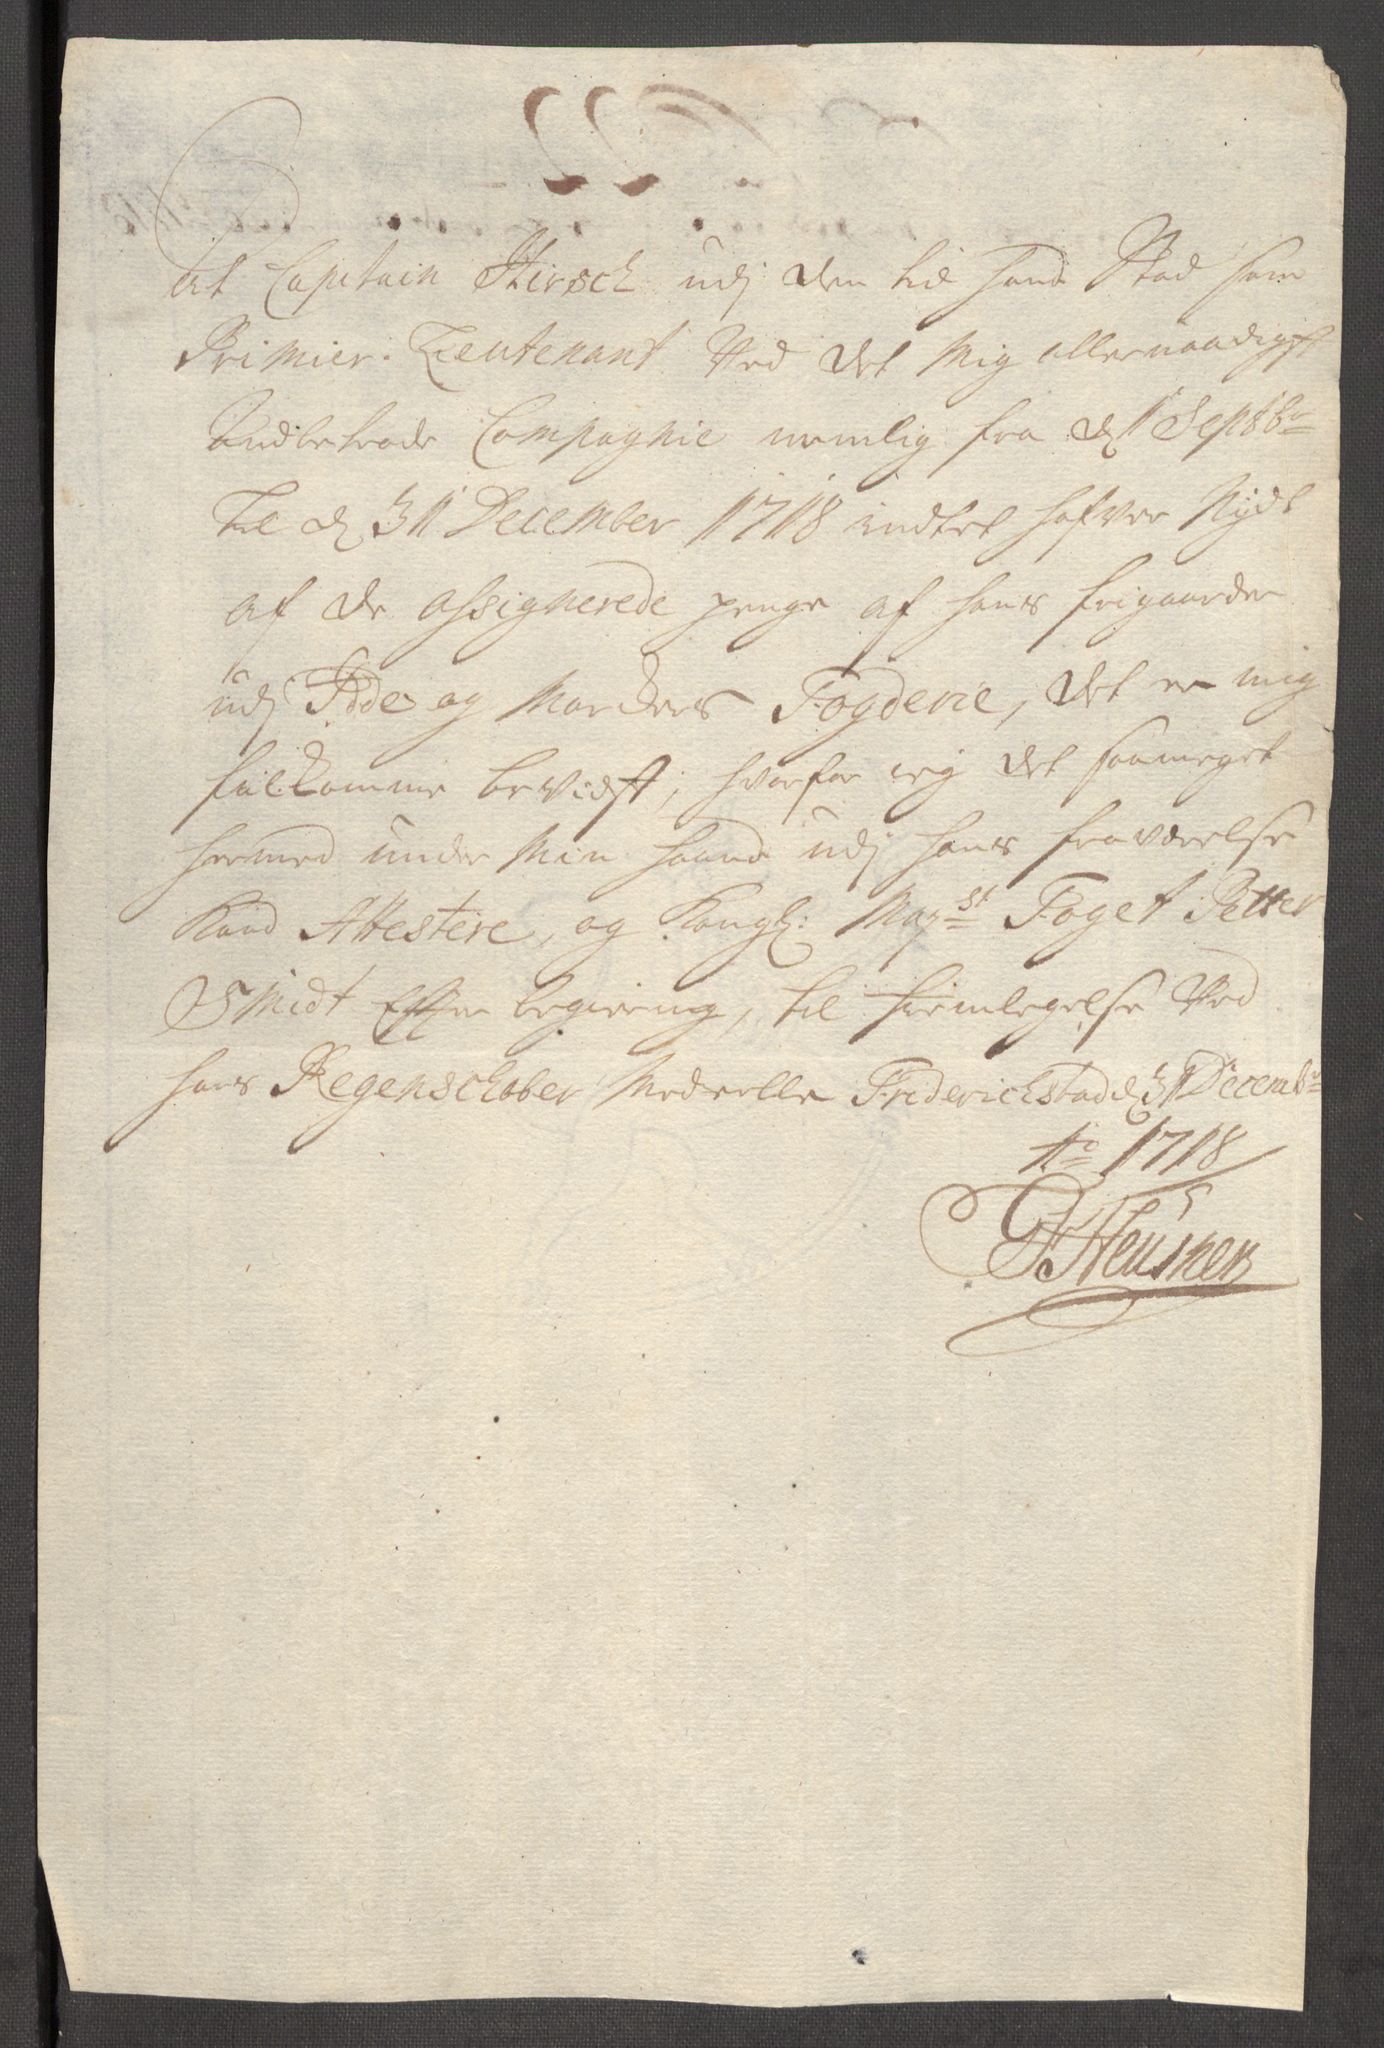 At Capitain Hirsch udj den tid hand Stod som
Primier. Lieutenant Ved det Mig allernaadigst
Andbetrode Compagnie nemlig fra d 1 Septbr
til d 31 December 1718 indtet hafver Nydt
af de assignerede penge af hans frigaarder
udj Idde og Markers Fogderie, det er mig
fulkomme bevidst, hvorfor ieg det saameget
hermed under Min haand udj hans fraværelse
Kand Attestere, og Kongl: Mayst Foget Petter
Smidt Effter begiering, til fremleggelse Ved
hans Regenschober Meddeelle Friderichstad d 31 Decembr
Ao 1718
Heusner